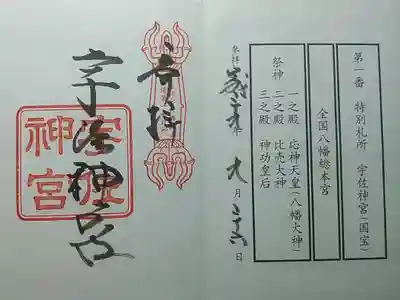 第一番　特別札所　宇佐神宮(国宝)
全国八幡総本宮
祭神
一之殿　応神天皇(八幡大神)
二之殿　比売大神
三之殿　神功皇后
参拝 年 九月 日
奉拝
宇佐神宮
宇佐神宮